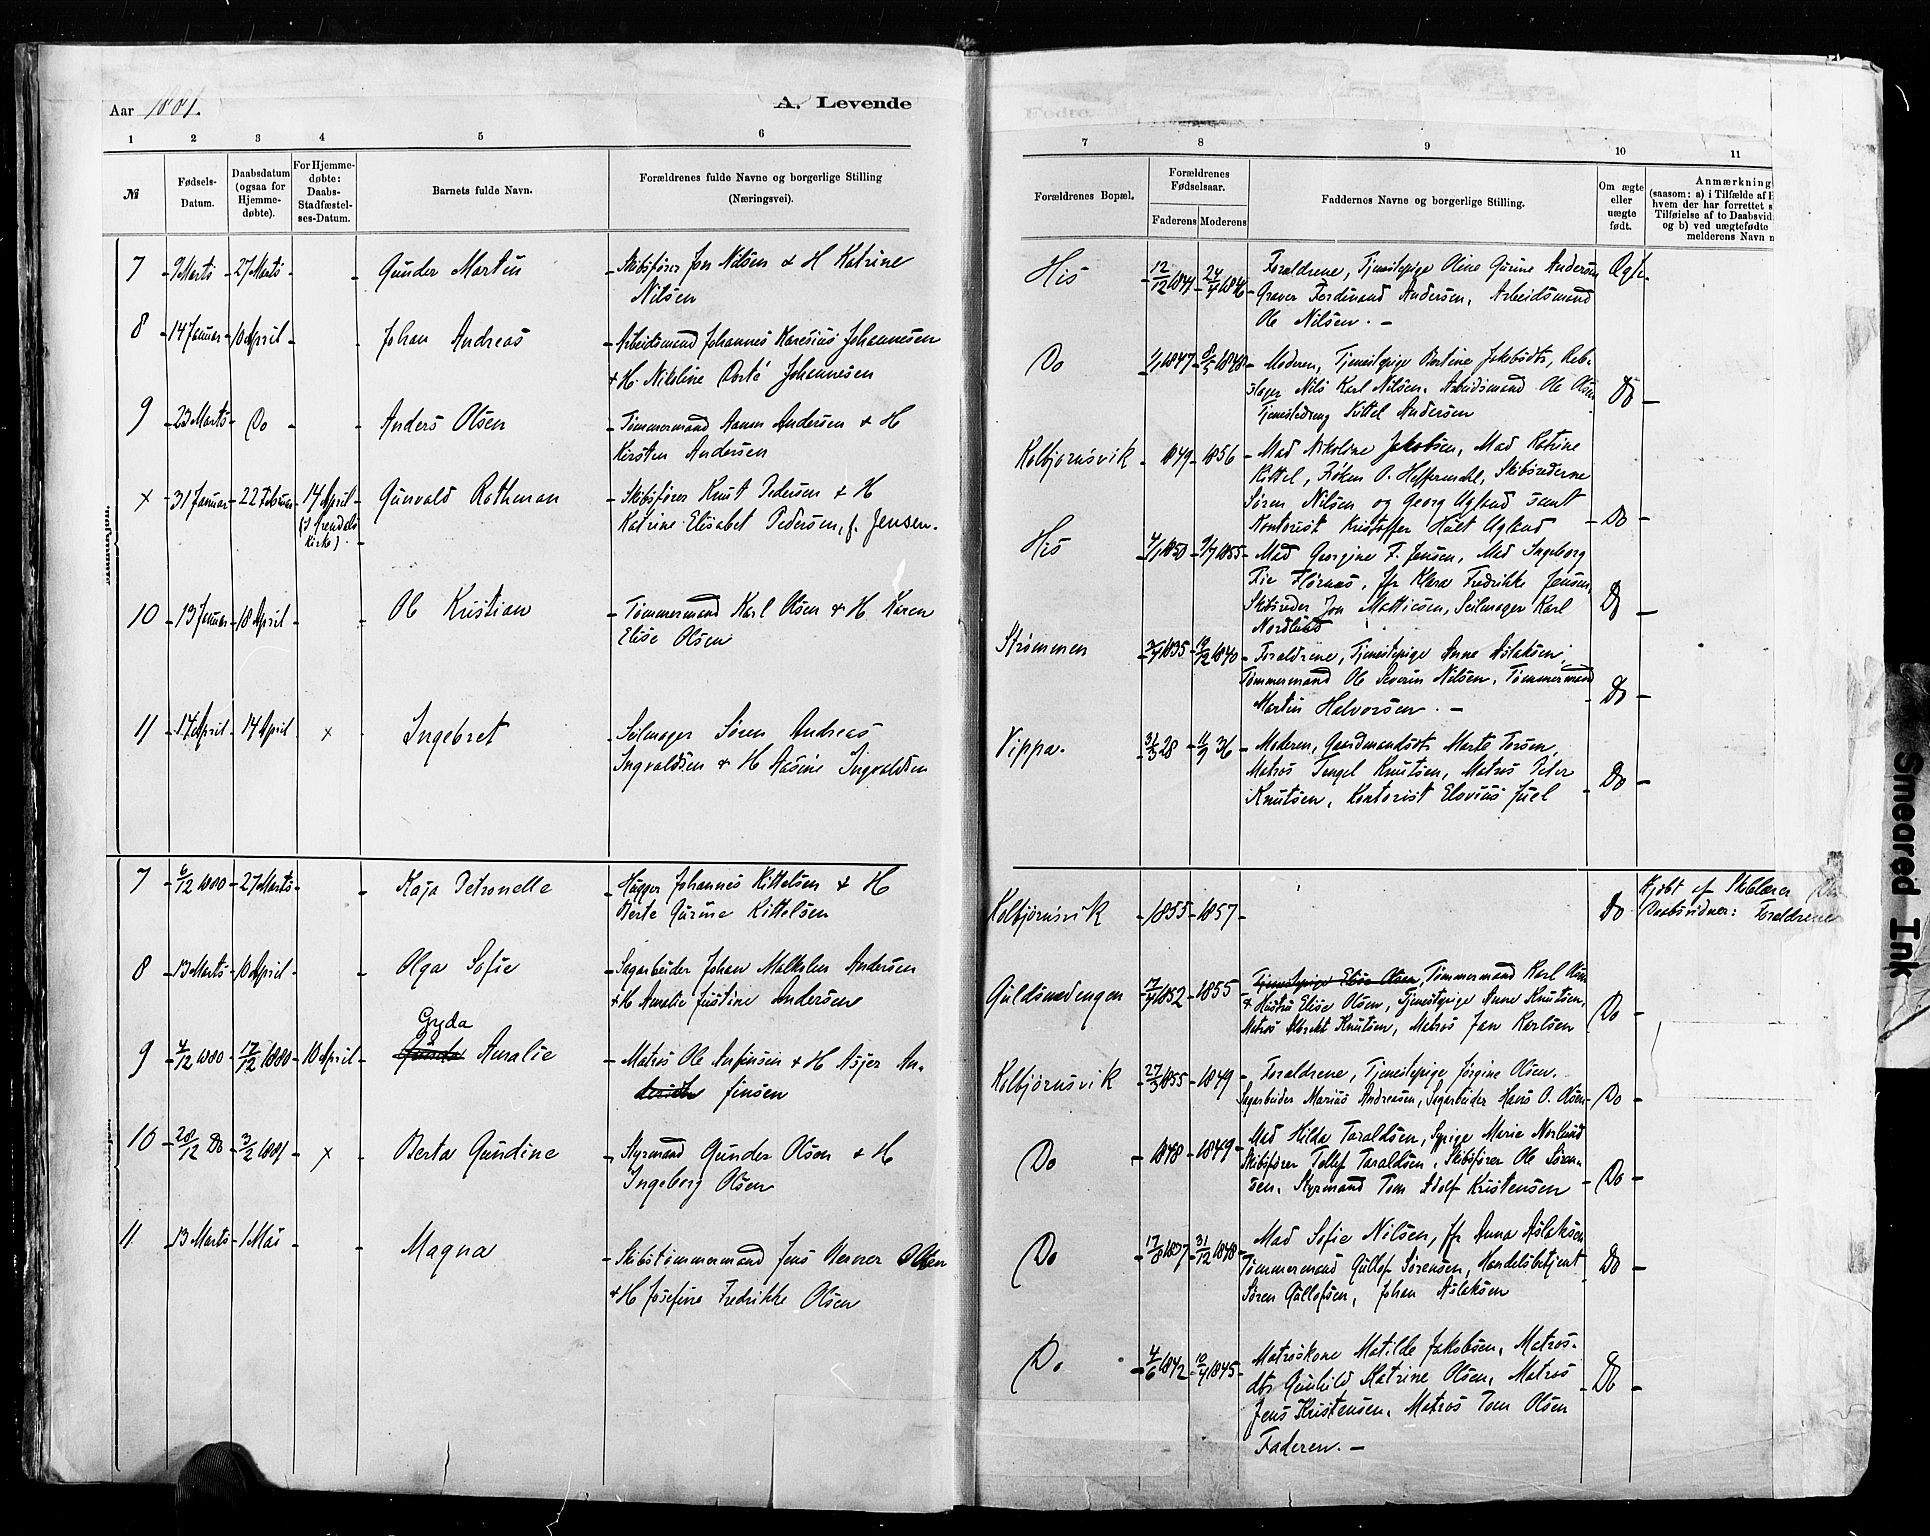 Aar 1881.
A. Levende
Fødte.
1 2 3 4 5 6
7 8 9 10 11
№
Fødsels-
Datum.
Daabsdatum
(ogsaa for
Hjemme-
døbte).
For Hjemme-
døbte:
Daabs-
Stadfæstel-
ses-Datum.
Barnets fulde Navn.
Forældrenes fulde Navne og borgerlige Stilling
(Næringsvei).
Forældrenes Bopæl.
Forældrenes
Fødselsaar.
Faderens Moderens
Faddernes Navne og borgerlige Stilling.
Om ægte
eller
uægte
født.
Anmærkning
(saasom: a) i Tilfælde af H
hvem der har forrettet s
Tilføielse af to Daabsvid
og b) ved uægtefødte
melderens Navn
7 9 Marts 27 Marts Gunder Martin
Skibsfører Jon Nilsen & H Katrine
Nilsen
8 14 Januar 10 April Johan Andreas
Arbeidsmand Johannes Karesius Johannesen
& H. Nikoline Dorté Johannesen
9 23 Marts Do Anders Olsen
Tømmermand Aanen Andersen & H
Kirsten Andersen
x 31 Januar 22 Februar 14 April Gunvald Rothman
(I Arendals
Kirke).
Skibsfører Knut Pedersen & H
Katrine Elisabet Pedersen, f. Jensen.
10 13 Januar 18 April Ole Kristian
Tømmermand Karl Olsen & H. Karen
Elise Olsen
11 14 April 14 April x Ingebret
Seilmager Søren Andreas
Ingvaldsen & H Aasine Ingvaldsen
7 6/12 1880 27 Marts Kaja Petronelle
Hugger Johannes Kittelsen & H
Berte Gurine Kittelsen
8 13 Marts 10 April Olga Sofie
Sagarbeider Johan Malkolm Andersen
& H Amalie Justine Andersen
Gyda
9 4/12 1880 17/12 1880 10 April Gunda Amalie
Matros Ole Anfinsen & H Asjer An-
finsen
10 28/12 Do 3/2 1881 x Berta Gundine
Styrmand Gunder Olsen & H
Ingeborg Olsen
11 13 Marts 1 Mai Magna
Skibstømmermand Jens Verner Olsen
& H Josefine Fredrikke Olsen
His 12/12 1844 24/4 1846
Forældrene, Tjenestepige Oline Gurine Andersen Ægte
Graver Ferdinand Andersen, Arbeidsmand
Ole Nilsen. —
Do 1/1 1847 8/5 1848
Moderen, Tjenestepige Bertine Jakobsdtr, Reb-
slager Nils Karl Nilsen, Arbeidsmand Ole Olsen Do
Tjenestedreng Kittel Andersen
Kolbjørnsvik 1849 1856
Mad Nikoline Jakobsen, Mad Katrine
Kittel, Frøken O. Heffermehl, Skibsrederne
Søren Nilsen og Georg Ugland samt
Kontorist Kristoffer Holt Ugland Do
His 4/1 1850 9/7 1855
Mad Georgine F. Jensen, Mad Ingeborg
Fie Flørnæs, Jfr Klara Fredrikke Jensen,
Skibsreder Jon Mattiesen, Seilmager Karl Do
Nordlund
Strømmen 3/9 1835 18/12 1840
Forældrene, Tjenestepige Anne Aslaksen,
Tømmermand Ole Severin Nilsen, Tømmermand
Martin Halvorsen. — Do
Vippa. 31/3 28 11/9 36
Moderen, Gaardmandsdtr Marte Torsen,
Matros Tengel Knutsen, Matros Peter
Knutsen, Kontorist Elovius Juel Do
Kolbjørnsvik 1855 1857 Do
Kjøbt af Skolelærer
Daabsvidner: Forældrene
Guldsmedengen 17/4 1852 1855
Tjenestepige Elise Olsen, Tømmermand Karl Olsen
& Hustru Elise Olsen, Tjenestepige Anne Knutsen,
Matros Albrekt Knutsen, Matros Jan Karlsen Do
Kolbjørnsvik 27/3 1855 1849
Forældrene, Tjenestepige Jørgine Olsen.
Sagarbeider Marius Andreasen, Sagarbeider Hans O. Olsen Do
Do 1848 1849
Mad Hilda Taraldsen, Sypige Marie Norlund
Skibsfører Tellef Taraldsen, Skibsfører Ole Søren-
sen, Styrmand Tom Adolf Kristensen Do
Do 17/8 1837 31/12 1848
Mad Sofie Nilsen, Jfr Anna Aslaksen
Tømmermand Gullof Sørensen, Handelsbetjent Do
Søren Gullofsen, Johan Aslaksen
Do 4/6 1842 10/4 1845
Matroskone Matilde Jakobsen, Matros-
dtr Gunhild Katrine Olsen, Matros Do
Jens Kristensen, Matros Tom Olsen
Faderen. —
Smeared Ink